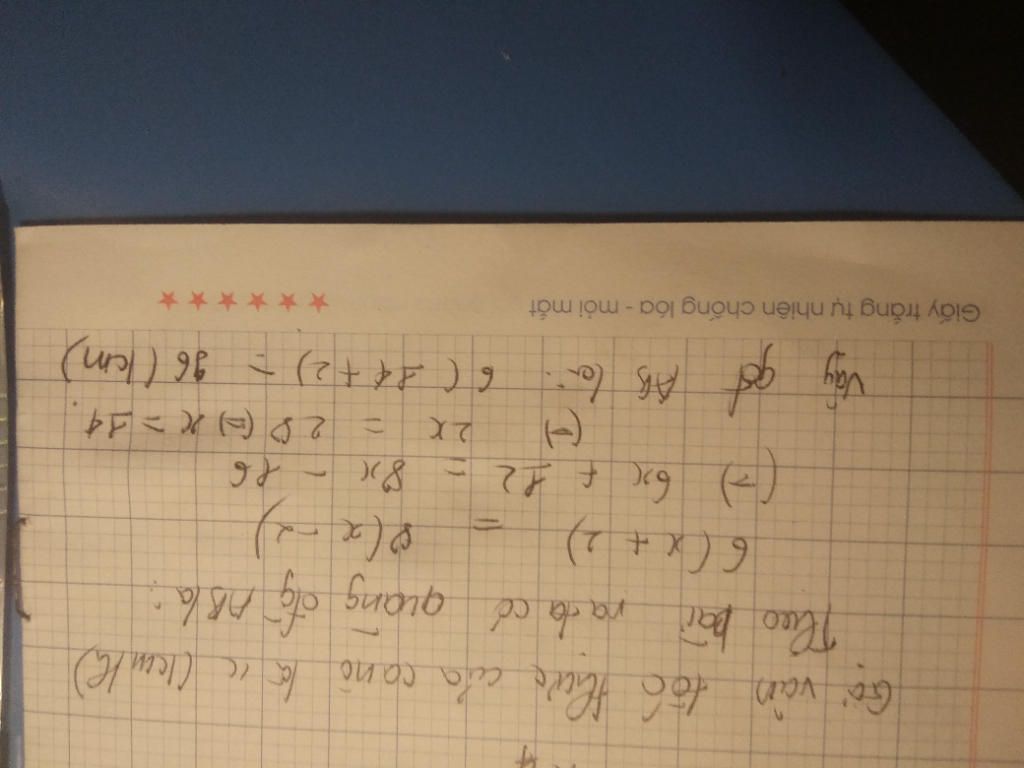 4
Gọi vận tốc thực của canô là x (km/h)
Theo bài ra ta có quãng đg AB là:
6(x + 2) = 8(x - 2)
(=) 6x + 12 = 8x - 16
(=) 2x = 28 (=) x = 14
Vậy qđ AB là: 6(14 + 2) = 96 (km)
Giấy trắng tự nhiên chống lóa - mỏi mắt